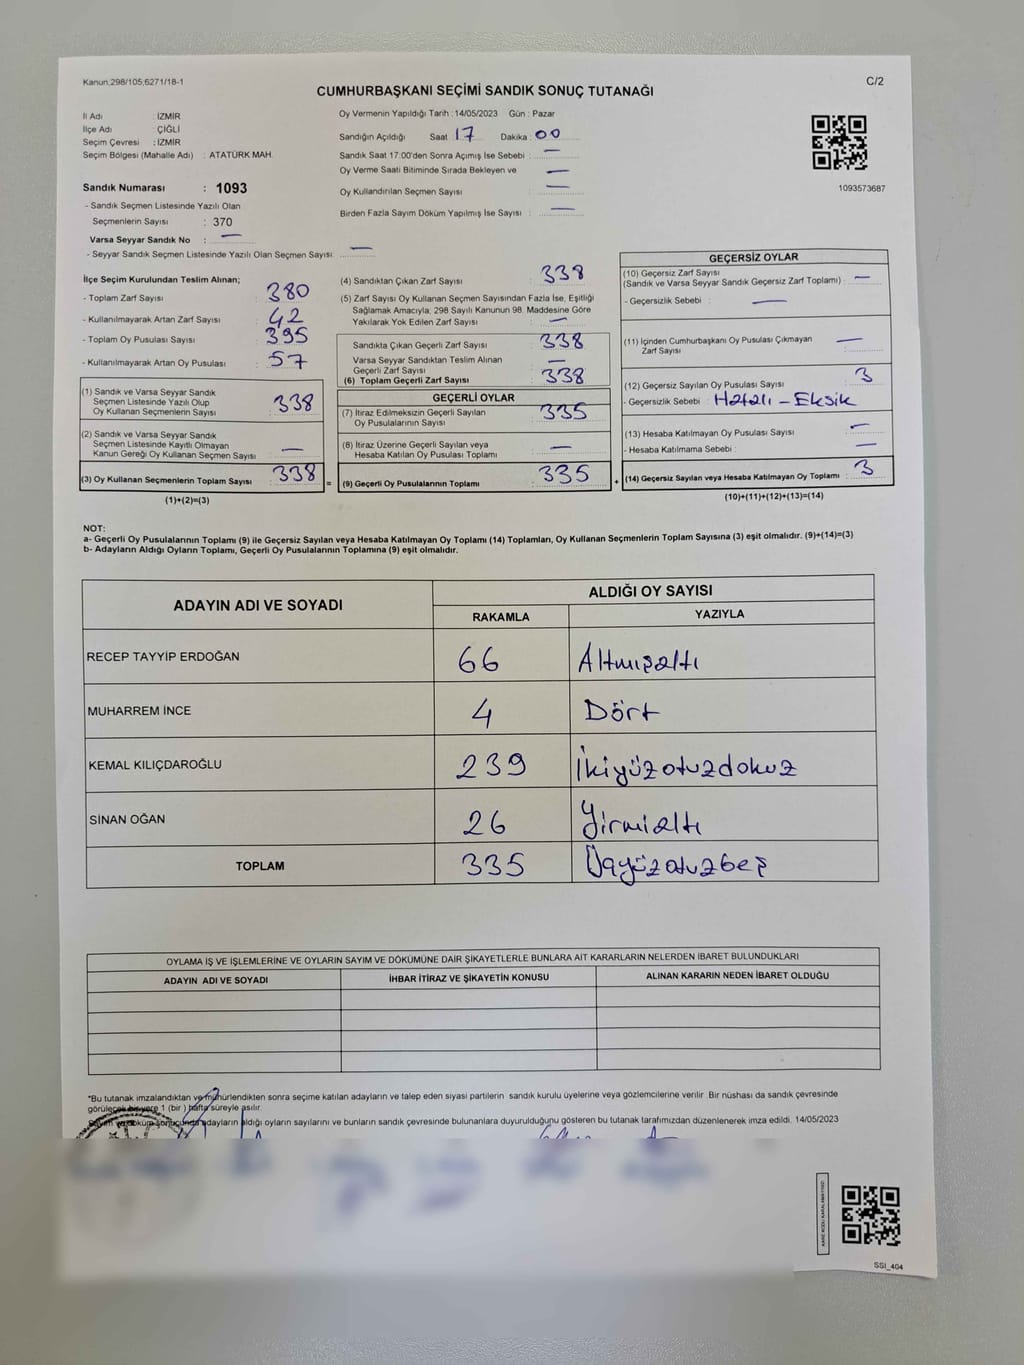 Kanun;298/105;6271/18-1
C/2
CUMHURBAŞKANI SEÇİMİ SANDIK SONUÇ TUTANAĞI
İl Adı : İZMİR
İlçe Adı : ÇİĞLİ
Seçim Çevresi : İZMİR
Seçim Bölgesi (Mahalle Adı) : ATATÜRK MAH.
Sandık Numarası : 1093
- Sandık Seçmen Listesinde Yazılı Olan
Seçmenlerin Sayısı : 370
Varsa Seyyar Sandık No : —
- Seyyar Sandık Seçmen Listesinde Yazılı Olan Seçmen Sayısı: —
Oy Vermenin Yapıldığı Tarih : 14/05/2023 Gün : Pazar
Sandığın Açıldığı Saat 17 Dakika : 00
Sandık Saat 17:00'den Sonra Açımış İse Sebebi : —
Oy Verme Saati Bitiminde Sırada Bekleyen ve —
Oy Kullandırılan Seçmen Sayısı —
Birden Fazla Sayım Döküm Yapılmış İse Sayısı : —
1093573687
İlçe Seçim Kurulundan Teslim Alınan;
- Toplam Zarf Sayısı : 380
- Kullanılmayarak Artan Zarf Sayısı : 42
- Toplam Oy Pusulası Sayısı : 395
- Kullanılmayarak Artan Oy Pusulası : 57
(1) Sandık ve Varsa Seyyar Sandık
Seçmen Listesinde Yazılı Olup
Oy Kullanan Seçmenlerin Sayısı : 338
(2) Sandık ve Varsa Seyyar Sandık
Seçmen Listesinde Kayıtlı Olmayan
Kanun Gereği Oy Kullanan Seçmen Sayısı : —
(3) Oy Kullanan Seçmenlerin Toplam Sayısı : 338
(1)+(2)=(3)
=
(4) Sandıktan Çıkan Zarf Sayısı : 338
(5) Zarf Sayısı Oy Kullanan Seçmen Sayısından Fazla İse, Eşitliği
Sağlamak Amacıyla; 298 Sayılı Kanunun 98. Maddesine Göre
Yakılarak Yok Edilen Zarf Sayısı : —
Sandıkta Çıkan Geçerli Zarf Sayısı : 338
Varsa Seyyar Sandıktan Teslim Alınan
Geçerli Zarf Sayısı : —
(6) Toplam Geçerli Zarf Sayısı : 338
GEÇERLİ OYLAR
(7) İtiraz Edilmeksizin Geçerli Sayılan
Oy Pusulalarının Sayısı : 335
(8) İtiraz Üzerine Geçerli Sayılan veya
Hesaba Katılan Oy Pusulası Toplamı : —
(9) Geçerli Oy Pusulalarının Toplamı : 335
+
GEÇERSİZ OYLAR
(10) Geçersiz Zarf Sayısı
(Sandık ve Varsa Seyyar Sandık Geçersiz Zarf Toplamı) : —
- Geçersizlik Sebebi : —
(11) İçinden Cumhurbaşkanı Oy Pusulası Çıkmayan
Zarf Sayısı —
(12) Geçersiz Sayılan Oy Pusulası Sayısı : 3
- Geçersizlik Sebebi : Hatalı - Eksik
(13) Hesaba Katılmayan Oy Pusulası Sayısı : —
- Hesaba Katılmama Sebebi : —
(14) Geçersiz Sayılan veya Hesaba Katılmayan Oy Toplamı : 3
(10)+(11)+(12)+(13)=(14)
NOT:
a- Geçerli Oy Pusulalarının Toplamı (9) ile Geçersiz Sayılan veya Hesaba Katılmayan Oy Toplamı (14) Toplamları, Oy Kullanan Seçmenlerin Toplam Sayısına (3) eşit olmalıdır. (9)+(14)=(3)
b- Adayların Aldığı Oyların Toplamı, Geçerli Oy Pusulalarının Toplamına (9) eşit olmalıdır.
ADAYIN ADI VE SOYADI
ALDIĞI OY SAYISI
RAKAMLA YAZIYLA
RECEP TAYYİP ERDOĞAN 66 Altmışaltı
MUHARREM İNCE 4 Dört
KEMAL KILIÇDAROĞLU 239 İkiyüzotuzdokuz
SİNAN OĞAN 26 Yirmialtı
TOPLAM 335 Üçyüzotuzbeş
OYLAMA İŞ VE İŞLEMLERİNE VE OYLARIN SAYIM VE DÖKÜMÜNE DAİR ŞİKAYETLERLE BUNLARA AİT KARARLARIN NELERDEN İBARET BULUNDUKLARI
ADAYIN ADI VE SOYADI İHBAR İTİRAZ VE ŞİKAYETİN KONUSU ALINAN KARARIN NEDEN İBARET OLDUĞU
*Bu tutanak imzalandıktan ve mühürlendikten sonra seçime katılan adayların ve talep eden siyasi partilerin sandık kurulu üyelerine veya gözlemcilerine verilir. Bir nüshası da sandık çevresinde
görülecek bir yere 1 (bir ) hafta süreyle asılır.
Sayım ve döküm sonucunda adayların aldığı oyların sayılarını ve bunların sandık çevresinde bulunanlara duyurulduğunu gösteren bu tutanak tarafımızdan düzenlenerek imza edildi. 14/05/2023
SSI_404